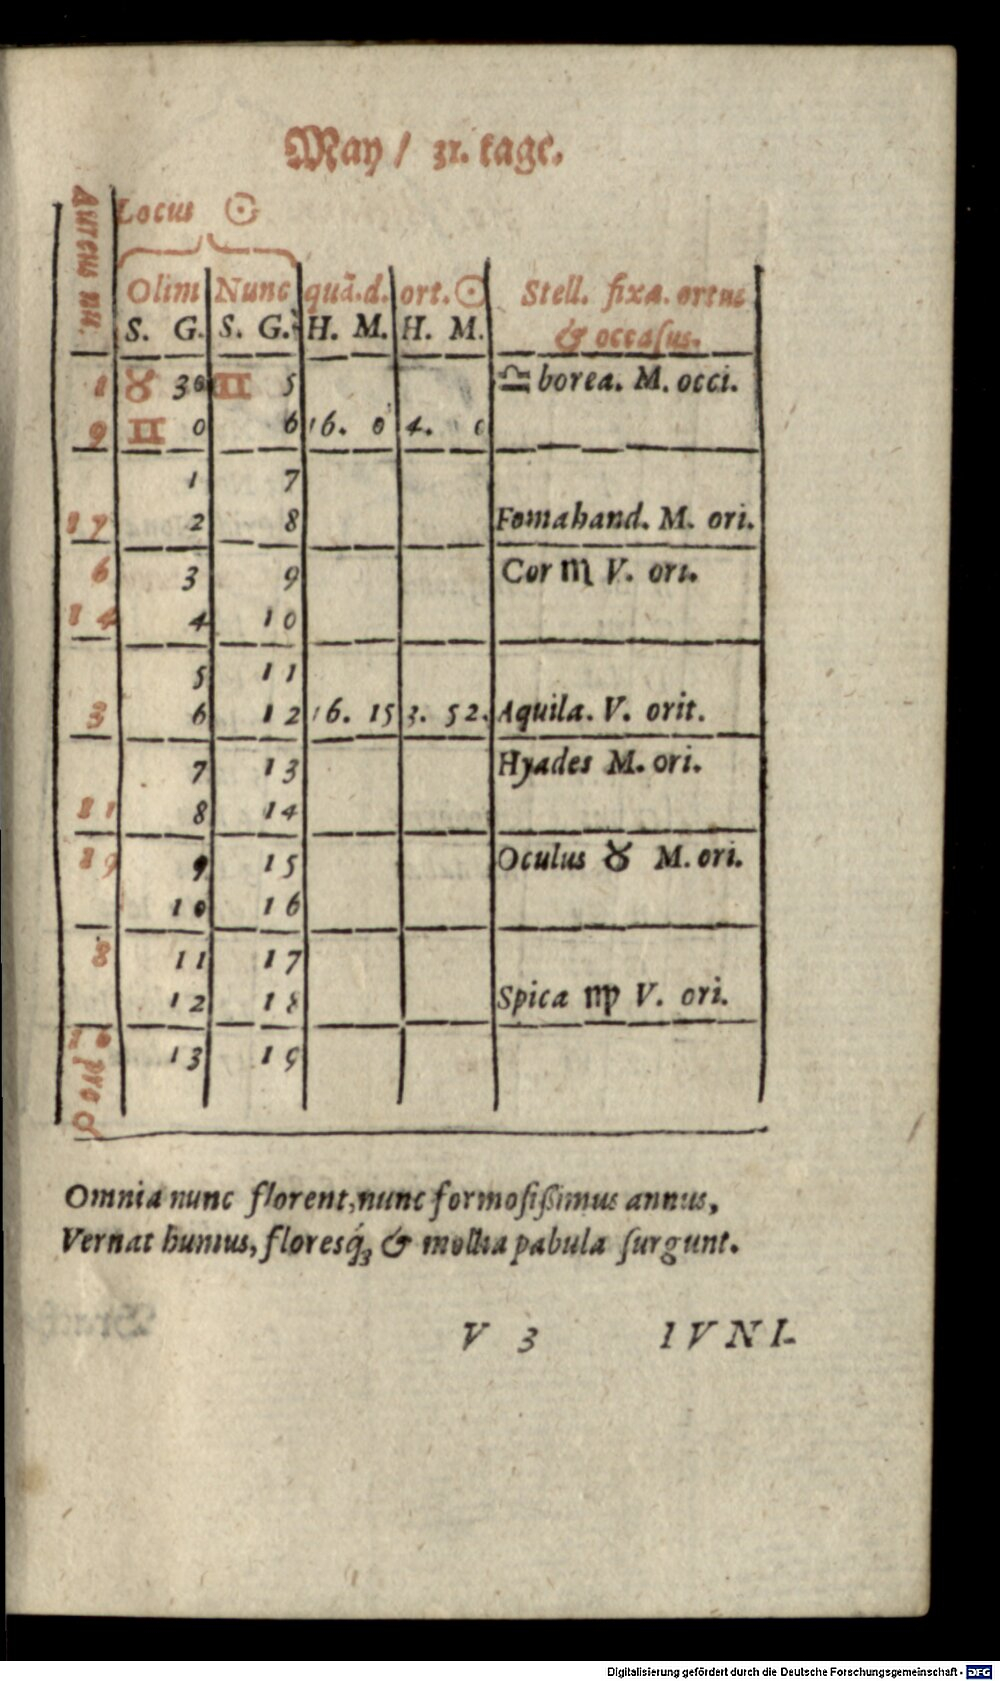 May / 31. tage.
Aureus nu.
Locus ☉
Olim Nunc quā.d. ort.☉ Stell. fixa. ortus
S. G. S. G. H. M. H. M. & occasus.
1 ♉ 30 ♊ 5 ♎ borea. M. occi.
9 ♊ 0 6 16. 0 4. 0
1 7
17 2 8 Fomahand. M. ori.
6 3 9 Cor ♏ V. ori.
14 4 10
5 11
3 6 12 16. 15 3. 52. Aquila. V. orit.
7 13 Hyades M. ori.
11 8 14
19 9 15 Oculus ♉ M. ori.
10 16
8 11 17
12 18 Spica ♍ V. ori.
13 19
pro ♂
Omnia nunc florent, nunc formosißimus annus,
Vernat humus, floresq́ꝫ & mollia pabula surgunt.
V 3 IVNI-
Digitalisierung gefördert durch die Deutsche Forschungsgemeinschaft - DFG